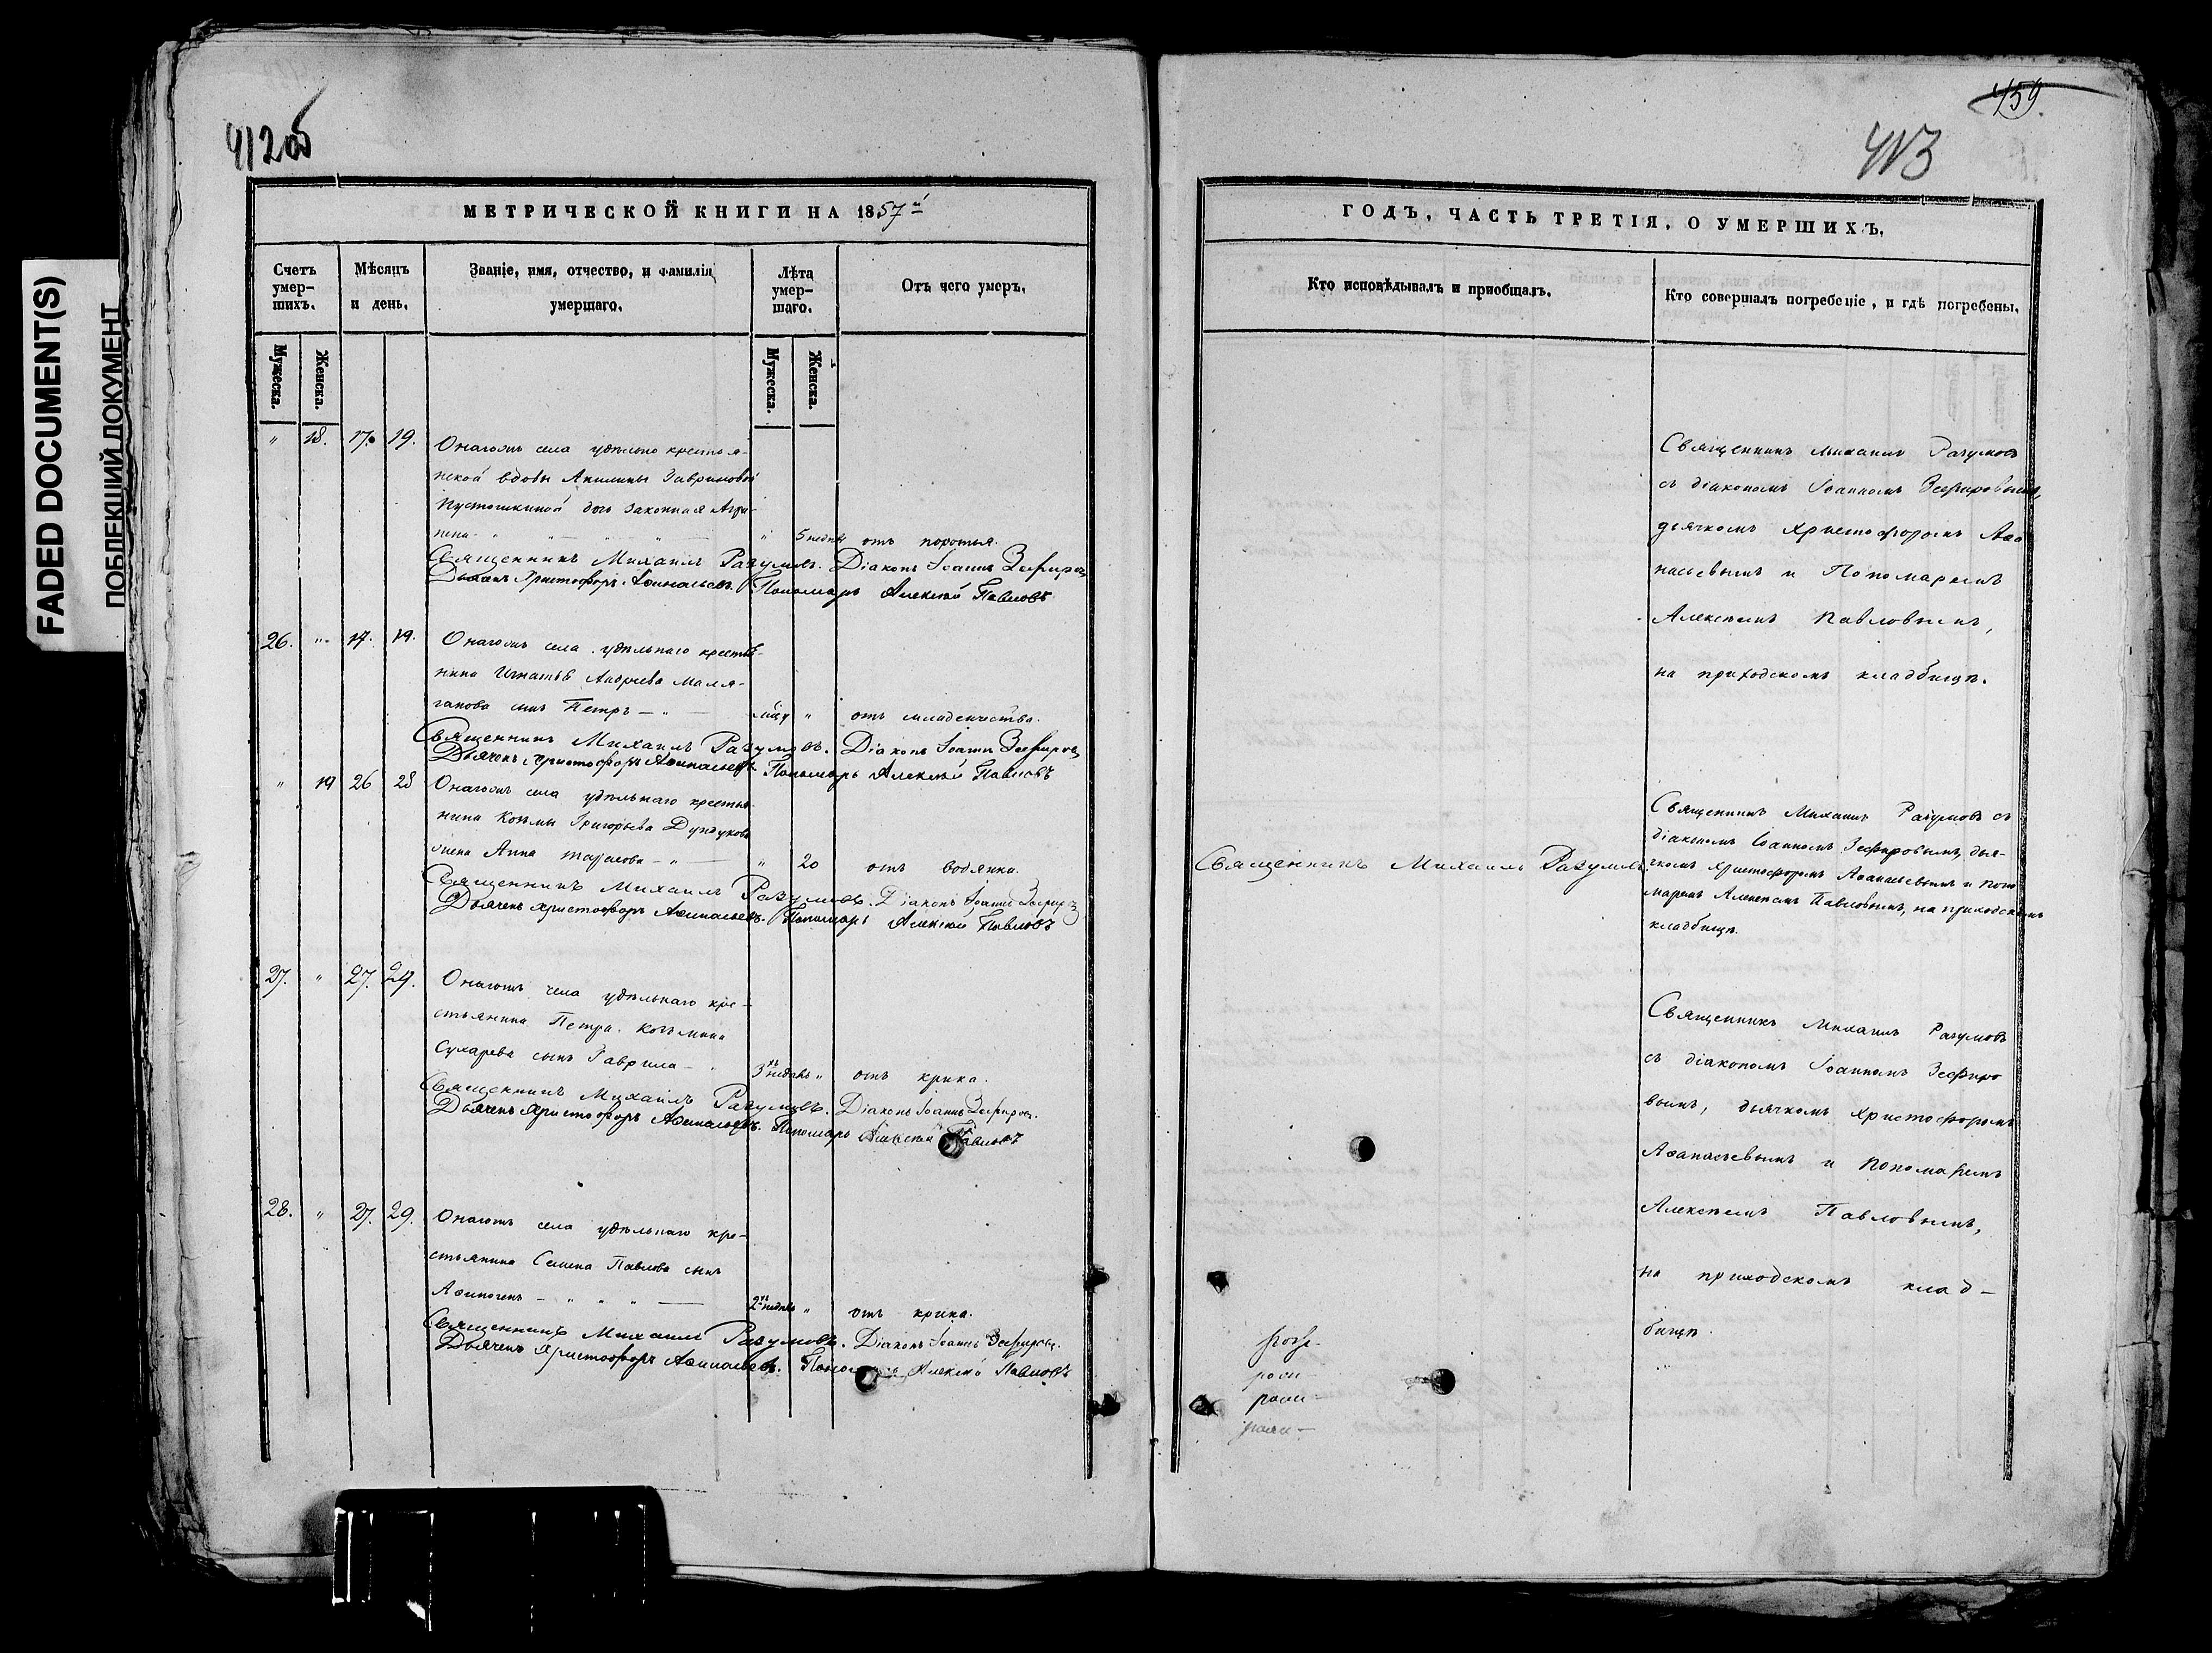 FADED DOCUMENT(S)
ПОБЛЕКШИЙ ДОКУМЕНТ
412об
МЕТРИЧЕСКОЙ КНИГИ НА 1857й
Счетъ умер-шихъ.
Мѣсяцъ и день.
Званіе, имя, отчество, и фамилія умершаго.
Лѣта умер-шаго.
Отъ чего умеръ.
Мужеска.
Женска.
Мужеска.
Женска.
" 18. 17. 19. Онагожъ села удѣльно крестья-
нской вдовы Акилины Гавриловой
Пустошкиной дочь законная Агри-
пена " 5 недѣль отъ поротья.
Священникъ Михаилъ Разумовъ. Діаконъ Іоаннъ Зефировъ
Дьячекъ Христофоръ Аѳанасьевъ. Пономарь Алексѣй Павловъ
26. " 17. 19. Онагожъ села удѣльнаго крестья-
нина Игнатья Андреева Маля-
гапова сынъ Петръ " отъ младенчества.
Священникъ Михаилъ Разумовъ. Діаконъ Іоаннъ Зефировъ
Дьячекъ Христофоръ Аѳанасьевъ. Пономарь Алексѣй Павловъ
" 19 26 28 Онагожъ села удѣльнаго крестья-
нина Козмы Григорьева Дундукова
жена Анна Тарасова " 20 отъ водянки.
Священникъ Михаилъ Разумовъ. Діаконъ Іоаннъ Зефировъ
Дьячекъ Христофоръ Аѳанасьевъ. Пономарь Алексѣй Павловъ
27. " 27. 29. Онагожъ села удѣльнаго кре-
стьянина Петра Козьмина
Сухарева сынъ Гаврила 3хъ недѣль " отъ крика.
Священникъ Михаилъ Разумовъ. Діаконъ Іоаннъ Зефировъ.
Дьячекъ Христофоръ Аѳанасьевъ. Пономарь Алексѣй Павловъ
28. " 27. 29. Онагожъ села удѣльнаго кре-
стьянина Семена Павлова сынъ
Аѳиногенъ " " " 2хъ недѣль " отъ крика.
Священникъ Михаилъ Разумовъ. Діаконъ Іоаннъ Зефировъ.
Дьячекъ Христофоръ Аѳанасьевъ. Пономарь Алексѣй Павловъ
459.
413
ГОДЪ, ЧАСТЬ ТРЕТІЯ, О УМЕРШИХЪ.
Кто исповѣдывалъ и пріобщалъ.
Кто совершалъ погребеніе, и гдѣ погребены.
Священникъ Михаилъ Разумовъ
съ діакономъ Іоанномъ Зефировымъ,
дьячкомъ Христофоромъ Аѳа
насьевымъ и Пономаремъ
Алексѣемъ Павловымъ,
на приходскомъ кладбищѣ.
Священникъ Михаилъ Разумовъ
Священникъ Михаилъ Разумовъ съ
діакономъ Іоанномъ Зефировымъ, дья-
чкомъ Христофоромъ Аѳанасьевымъ и поно
маремъ Алексѣемъ Павловымъ, на приходскомъ
кладбищѣ.
Священникъ Михаилъ Разумовъ
съ діакономъ Іоанномъ Зефиро
вымъ, дьячкомъ Христофоромъ
Аѳанасьевымъ и Пономаремъ
Алексѣемъ Павловымъ,
на приходскомъ клад-
бищѣ.